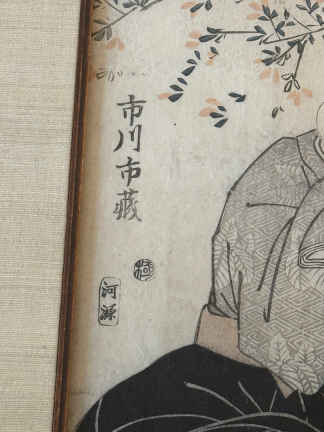 市川市蔵
極
河源